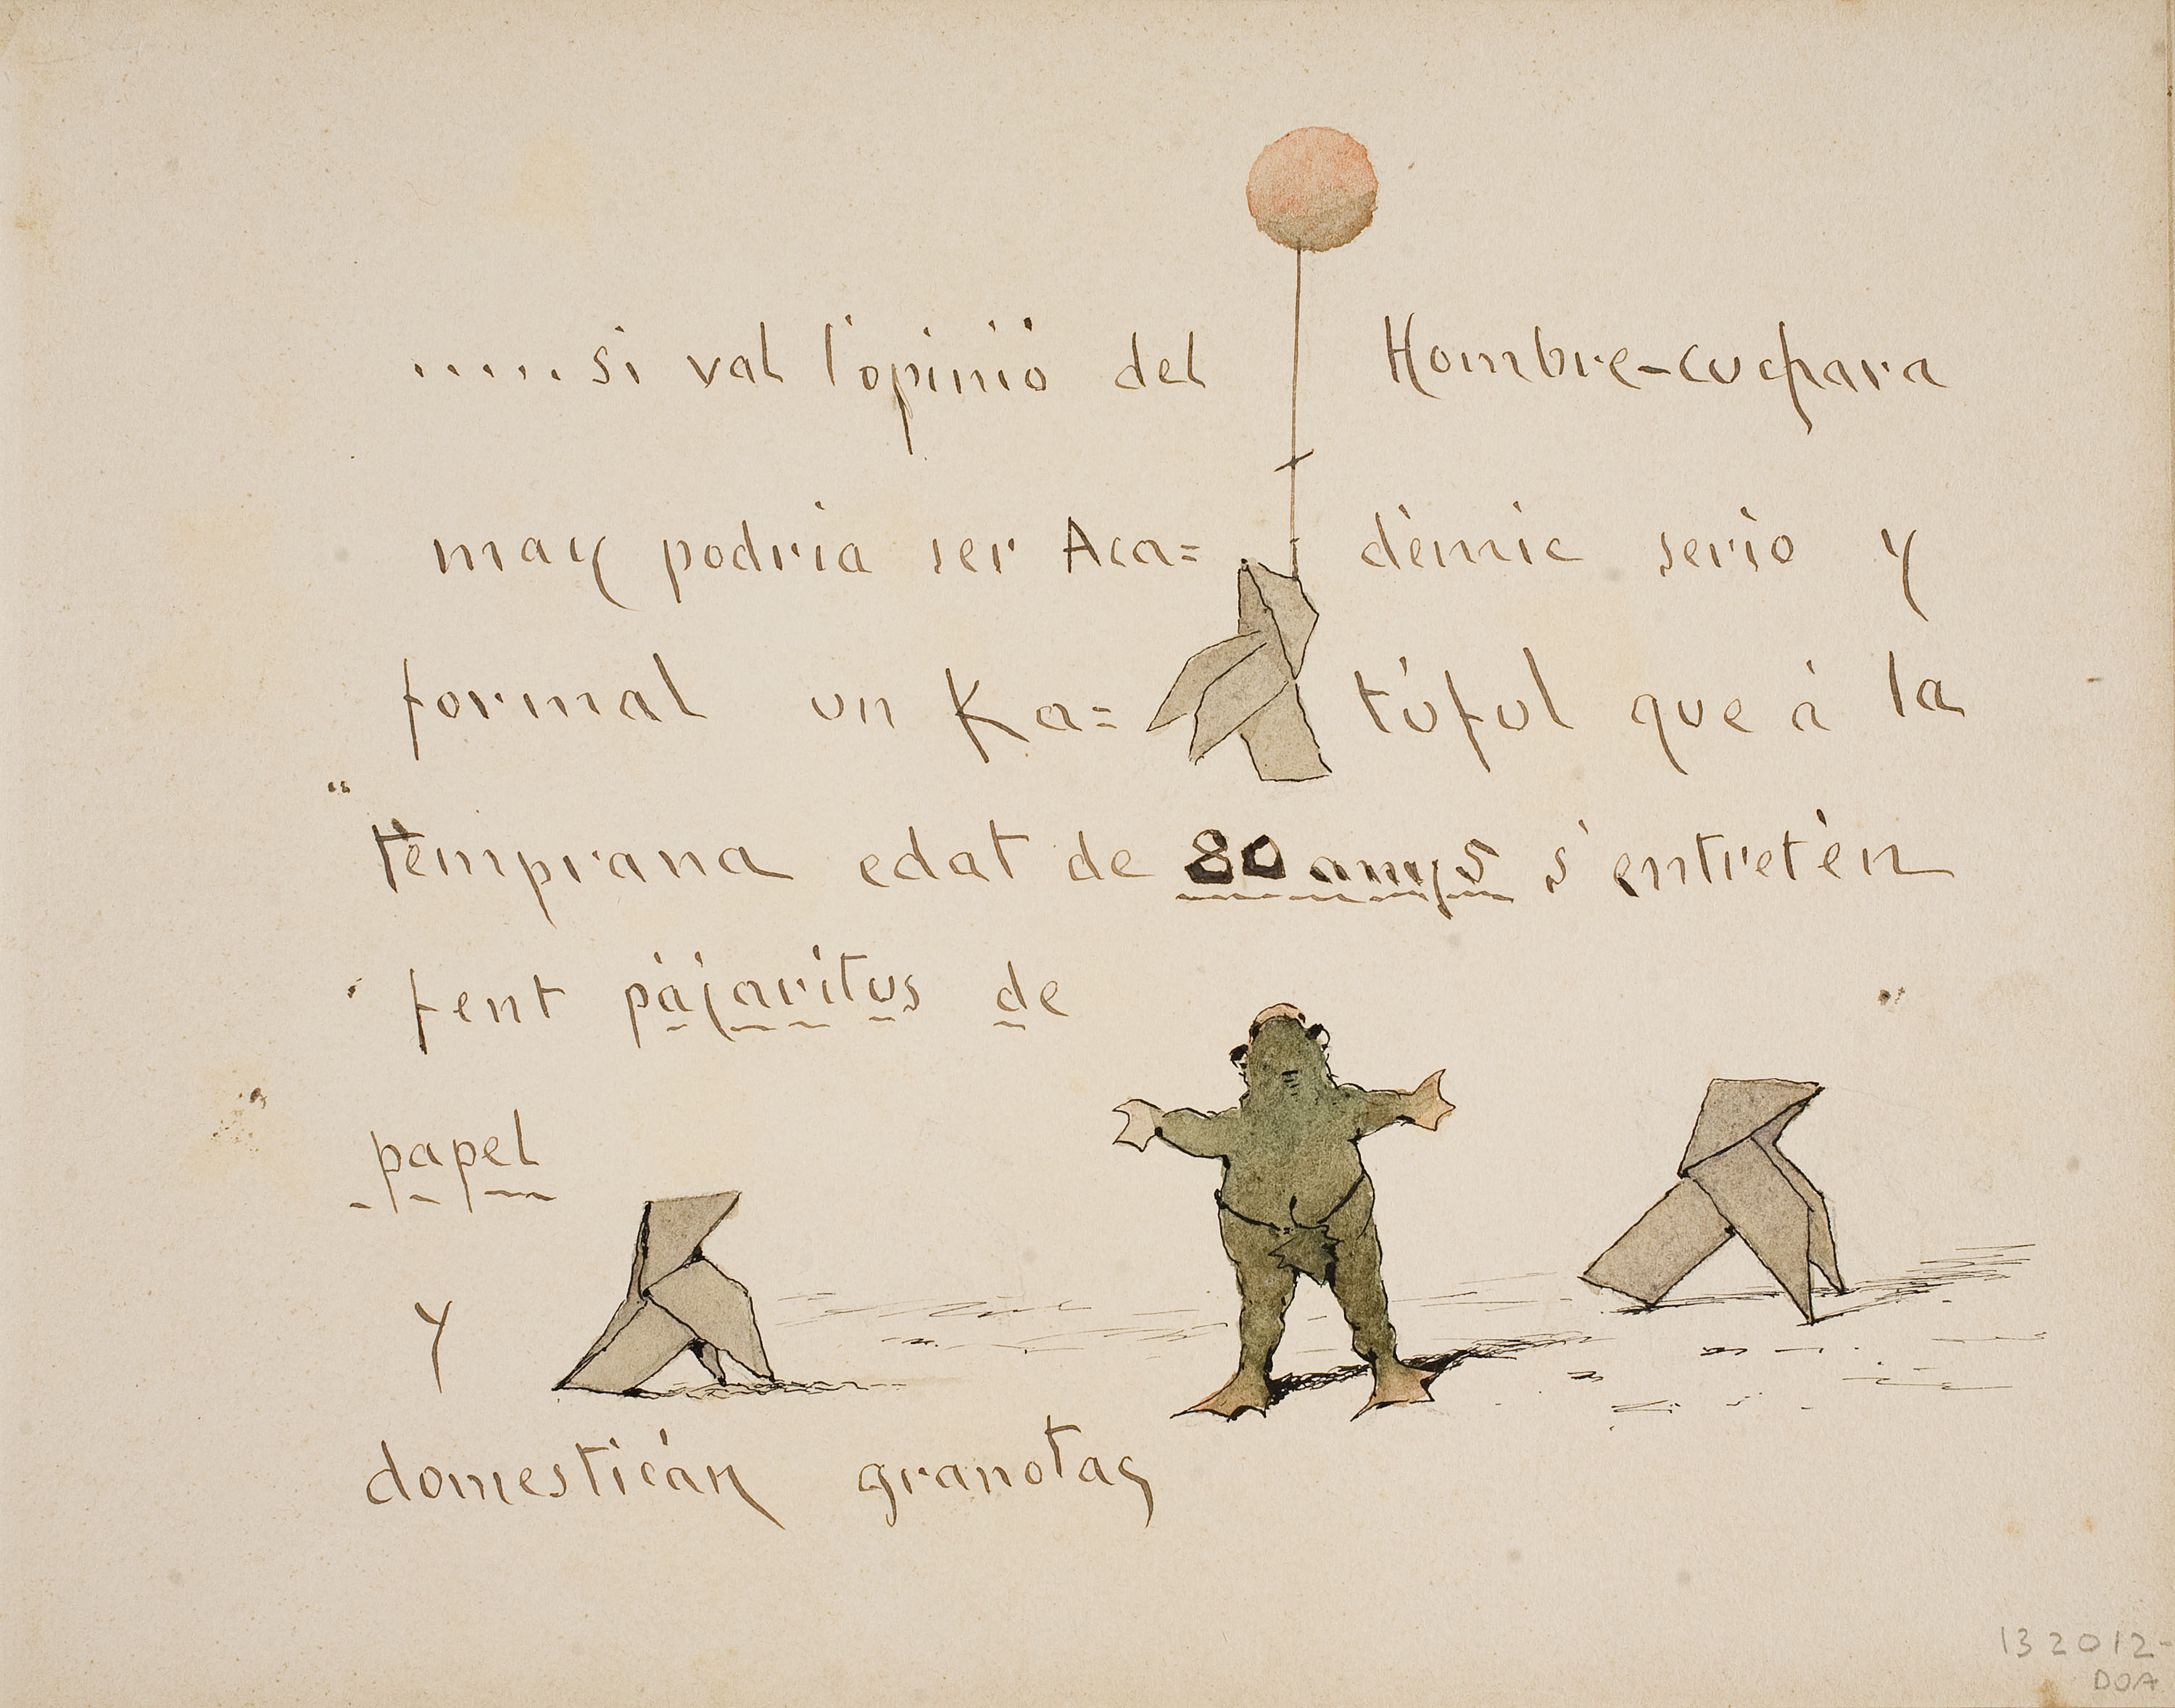 .....si val l'opinió del Hombre-cuchara
may podria ser Aca=démic serio y
formal un Ka=túful que á la
temprana edat de 80 anys s'entretén
fent pájaritus de
papel
y
domesticán granotas
132012-
DOA